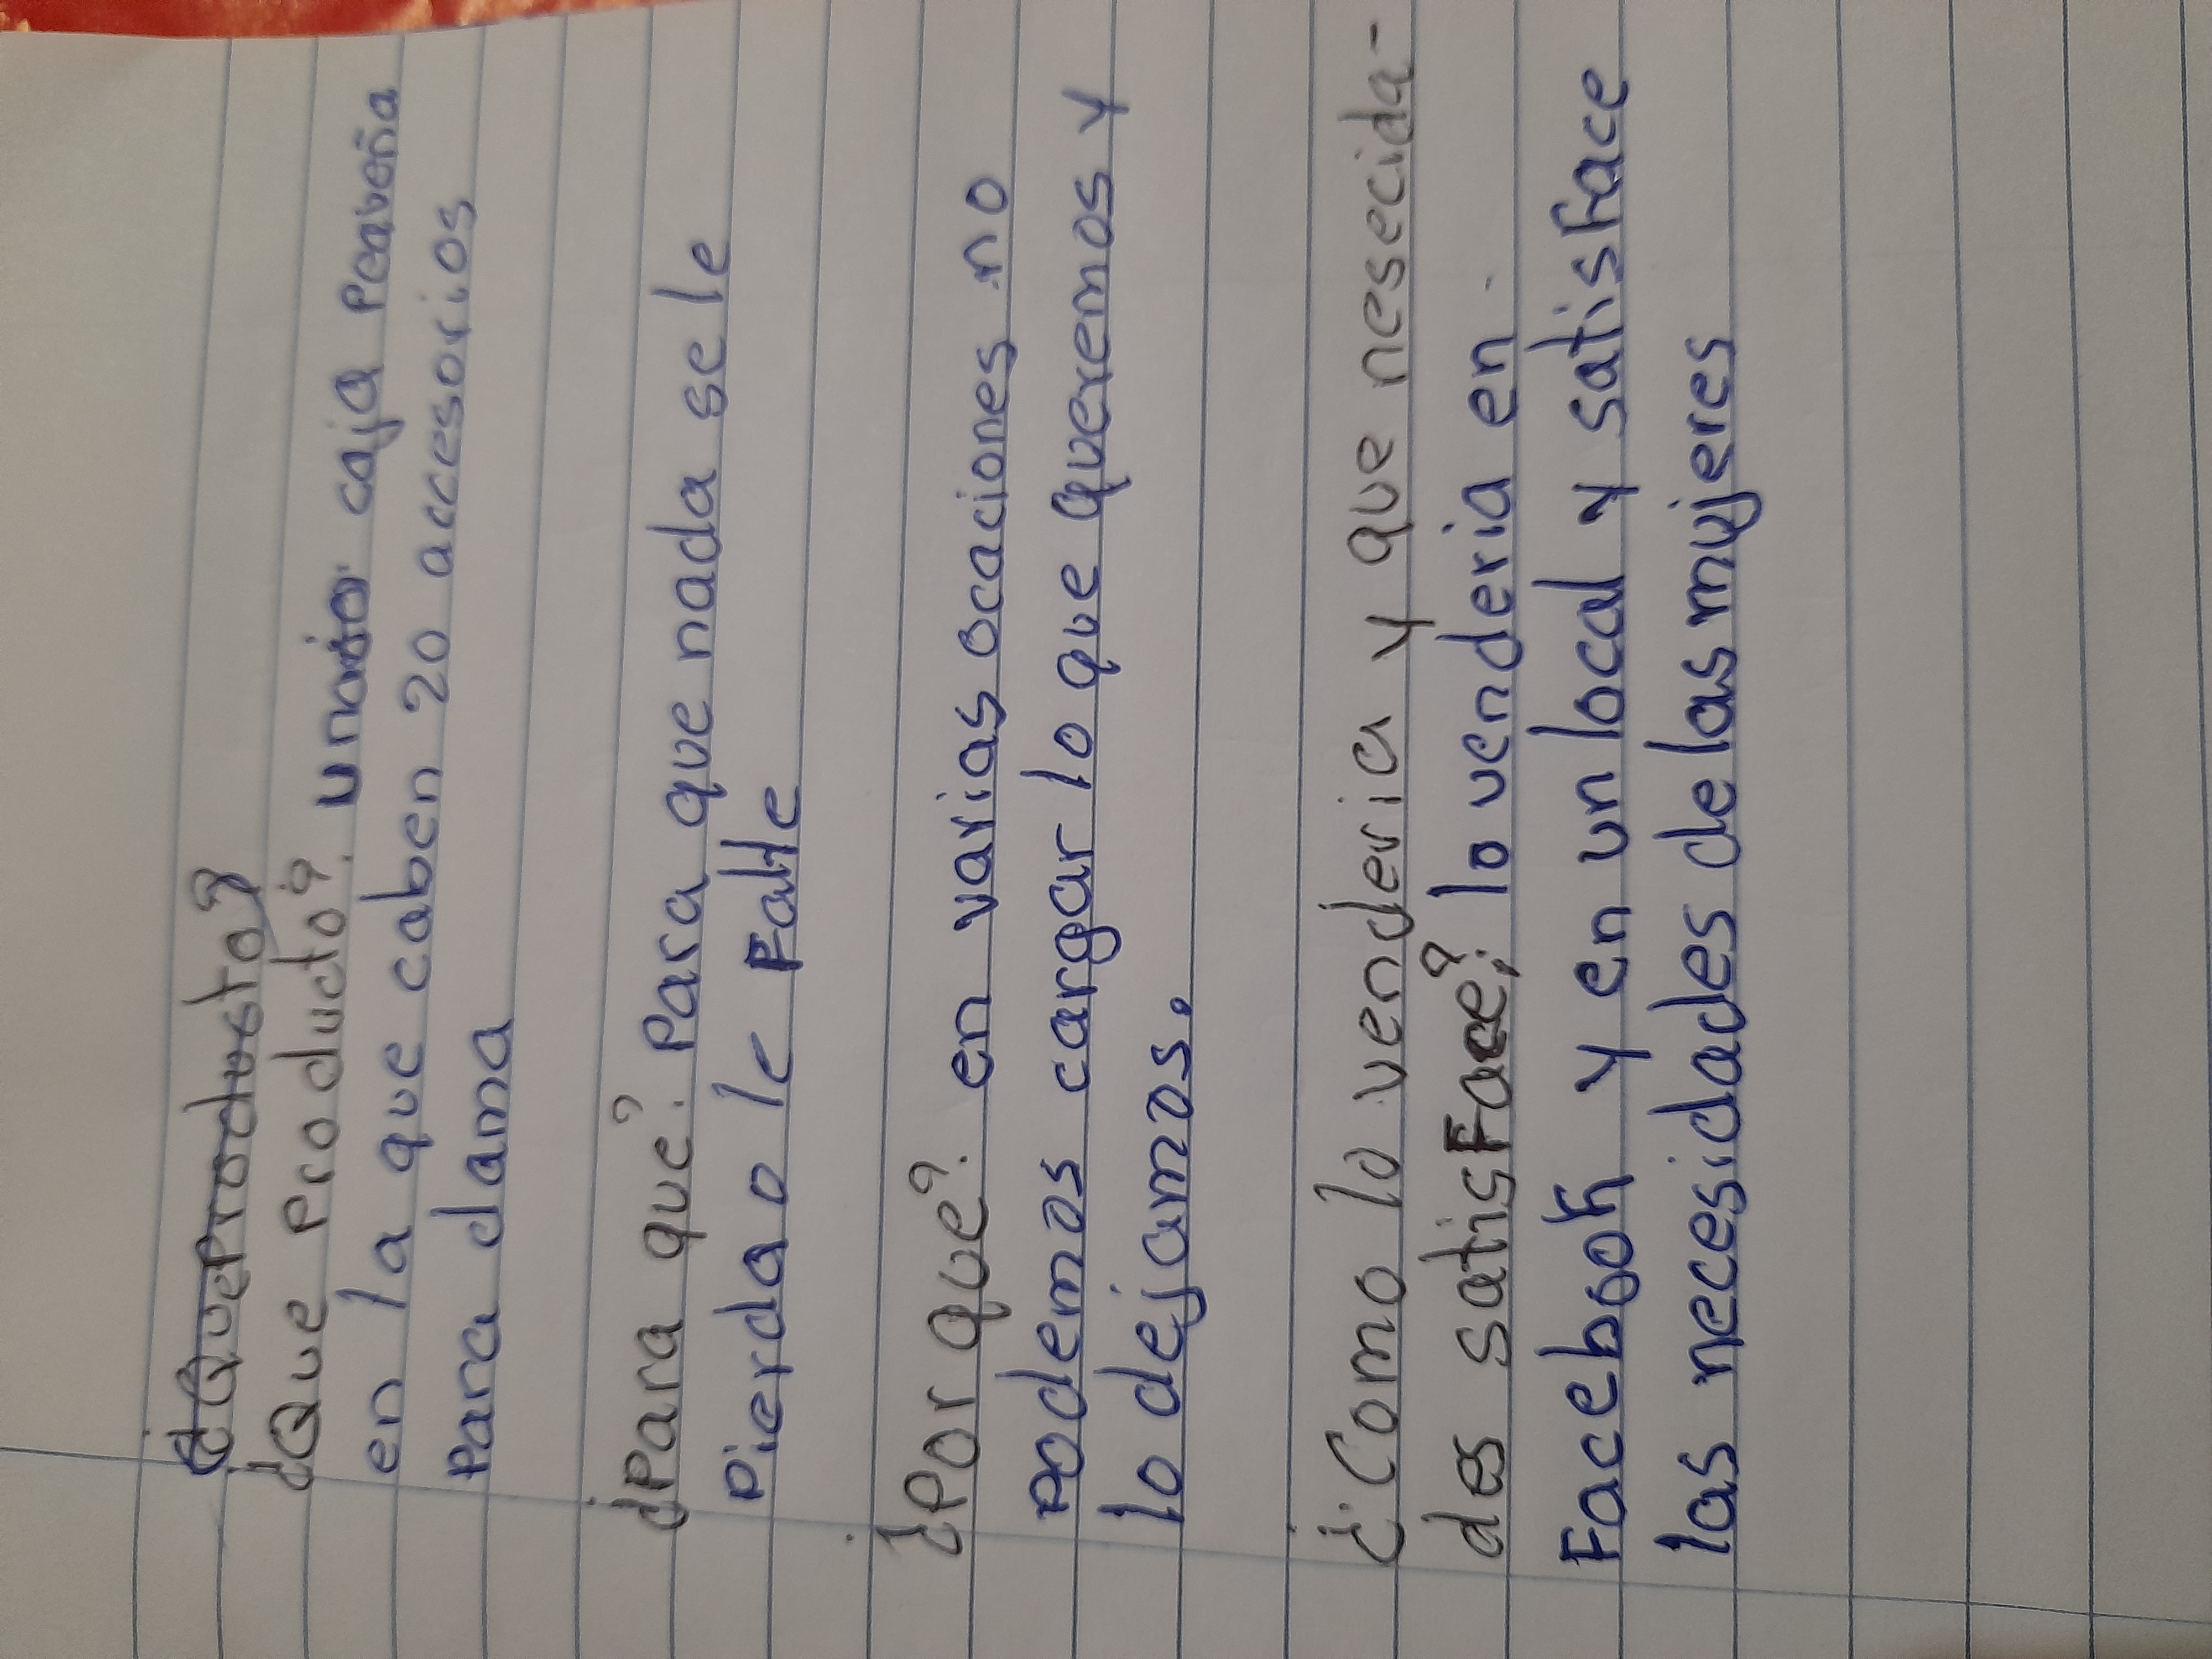 ¿Que producto?
¿Que Producto?. una caja Peaueña
en la que caben 20 accesorios
Para dama
¿Para que?. Para que nada se le
Pierda o le Falte
¿Por que?. en varias ocaciones no
Podemos cargar lo que queremos y
lo dejamos.
¿Como lo venderia y que nesecida-
des satisFace?, lo venderia en
Facebook y en un local y satisface
las necesidades de las mujeres